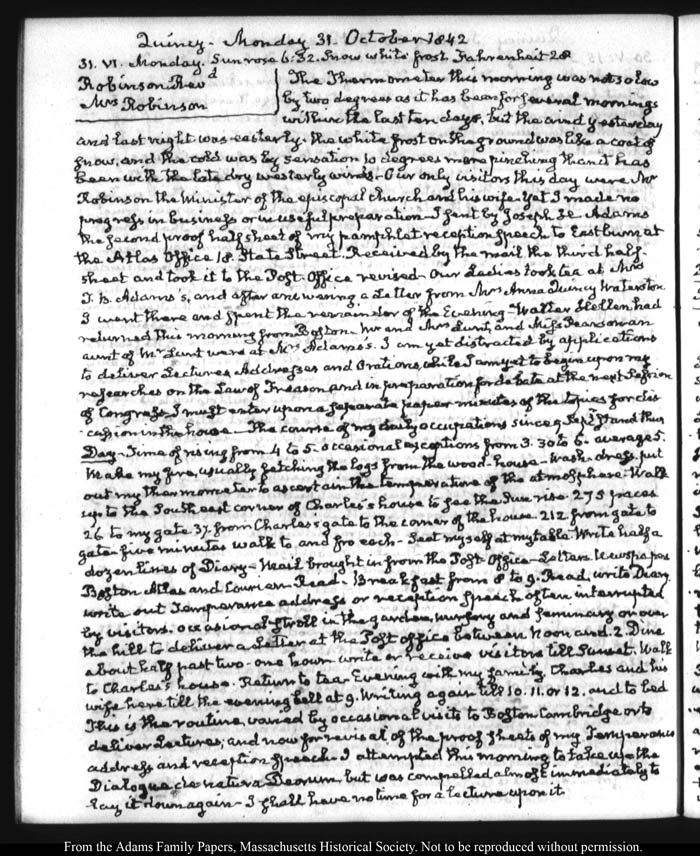 Quincy - Monday 31. October 1842
31. VI. Monday. Sun rose 6:32. Snow white frost. Fahrenheit 28
Robinson Revd
Mrs Robinson
The Thermometer this morning was not so low
by two degrees as it has been for several mornings
within the last ten days, but the wind yesterday
and last night was easterly. the white frost on the ground was like a coat of
snow, and the cold was by sensation 10 degrees more pinching than it has
been with the late dry westerly winds. Our only visitors this day were Mr
Robinson the Minister of the episcopal church and his wife. Yet I made no
progress in business or in useful preparation. I sent by Joseph H. Adams
the second proof half sheet of my pamphlet reception speech to Eastburn at
the Atlas Office 18. State Street. Received by the mail the third half-
sheet and took it to the Post-Office revised. Our Ladies took tea at Mrs
T. B. Adams's, and after answering a Letter from Mrs Anna Quincy Waterston
I went there and spent the remainder of the Evening - Walter Hellen had
returned this morning from Boston. Mr and Mrs Lunt, and Miss Pearson an
aunt of Mr Lunt were at Mrs Adams's. I am yet distracted by applications
to deliver Lectures, Addresses and Orations, while I am yet to begin upon my
researches on the Law of Treason and in preparation for debate at the next Session
of Congress. I must enter upon a separate paper minutes of the topics for dis-
cussion in the house. The course of my daily occupations since 9 Septr and thus
Day - Time of rising from 4 to 5. occasional exceptions from 3.30 to 6 - average 5.
Make my fire, usually fetching the logs from the wood-house - Wash - dress, put
out my thermometer to ascertain the temperature of the atmosphere. Walk
up to the South east corner of Charles's house to see the Sun rise. 275 paces
26 to my gate 37. from Charles's gate to the corner of the house. 212 from gate to
gate - five minutes walk to and fro each - Seat myself at my table. Write half a
dozen lines of Diary - Mail brought in from the Post-Office - Letters Newspapers
Boston Atlas and Courier. Read - Breakfast from 8 to 9. Read, write Diary
write out Temperance address or reception speech often interrupted
by visitors. occasional stroll in the garden, nursery and seminary or over
the hill to deliver a Letter at the Post office between Noon and 2. Dine
about half past two - one hour write or receive visitors till Sunset. Walk
to Charles's house. Return to tea. Evening with my family. Charles and his
wife here till the evening bell at 9. Writing again till 10. 11. or 12. and to bed
This is the routine, varied by occasional visits to Boston Cambridge or to
deliver Lectures; and now for revisal of the proof sheets of my Temperance
address and reception speech - I attempted this morning to take up the
Dialogue de natura Deorum but was compelled almost immediately to
lay it down again - I shall have no time for a lecture upon it
From the Adams Family Papers, Massachusetts Historical Society. Not to be reproduced without permission.